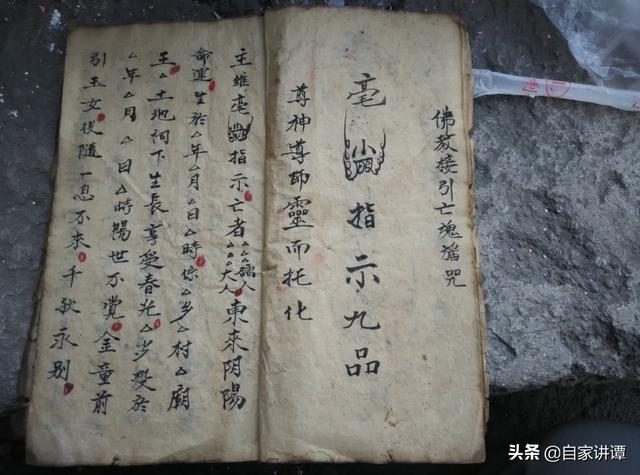 佛教接引亡魂咒
毫 指示九品
尊神尊師靈而托化
主維毫 指示亡者△△孺人△△大人東來阴陽
命運生於△年△月△日△時係△乡△村△廟
王△土地祠下生長享受春光△步殁於
△年△月△日△時陽世不覺金童前
引玉女後随一息不來千秋永别
头条 @自家讲谭